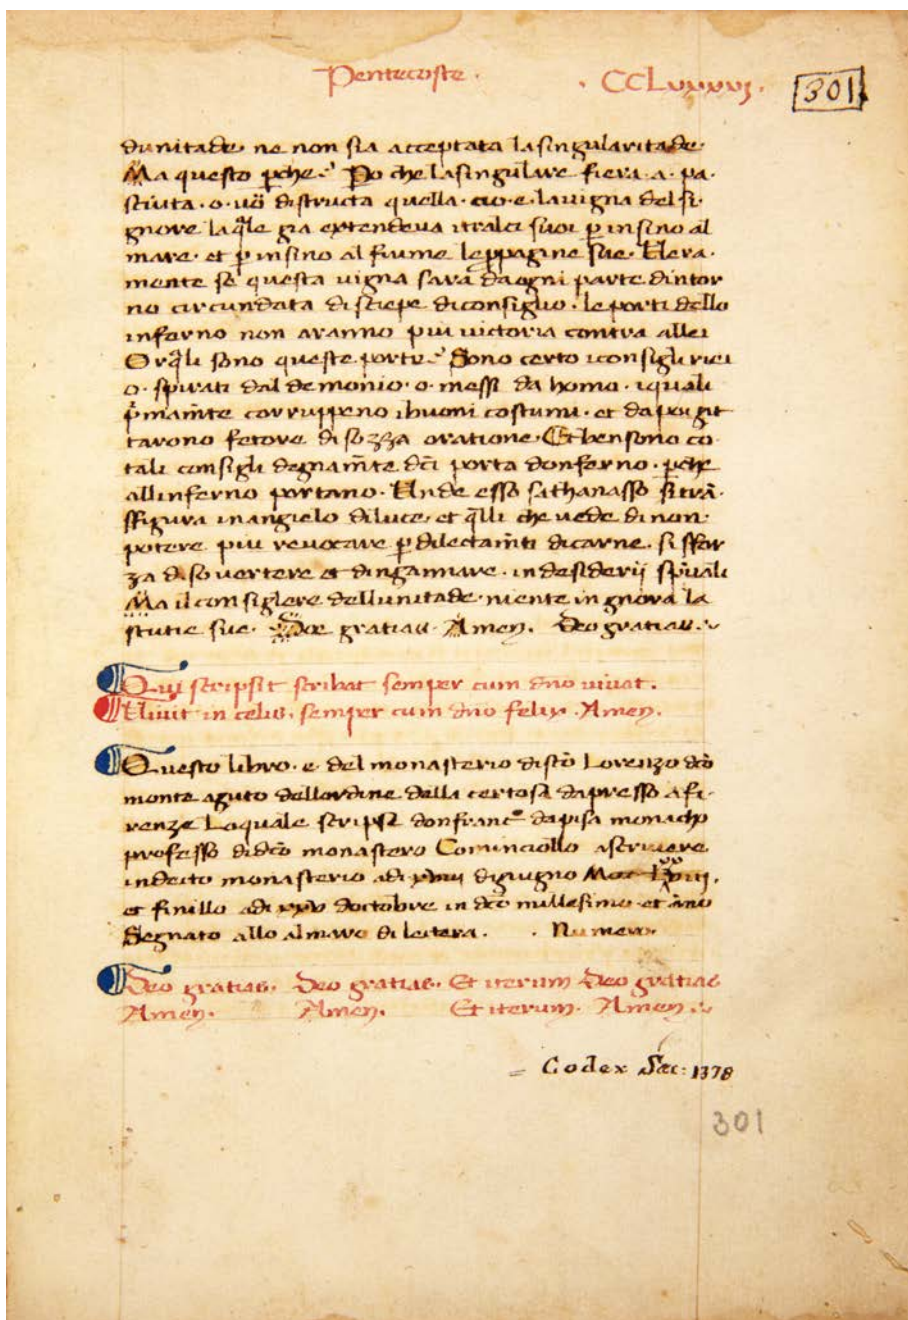 Pentecoste · · CCLxxxvj · 301
dunitade ne non sia acceptata lasingularitade
Ma questo perche Po che lasingulare fiera a pa
sciuta · o · uo distructa quella · cio · e · lauigna del si
gnore laqle gia extendeua itralci suoi p insino al
mare · et p insino al fiume leppagine sue · Uera
mente se questa uigna sara daogni parte dintor
no circundata di siepe diconsiglio · le porti dello
inferno non aranno piu uictoria contra allei
Or qli sono queste porti Sono certo iconsigli rei
o · spirati dal demonio · o · messi da homo · iquali
pmamte corruppeno ibuoni costumi · et dapoi git
tarono fetore di sozza oratione · Et ben sono co
tali consigli degnamte dci porta donferno · pche
allinferno portano · Unde esso sathanasso si tra
sfigura in angielo diluce · et qlli che uede di non
potere piu reuocare p dilectamti dicarne · si sfor
za di souertere et dingannare · in desiderij spuali
Ma il consigliere dellunitade niente ingnora la
stutie sue · Deo gratias · Amen. Deo gratias
Qui scripsit scribat semper cum dno uiuat.
Uiuit in celis, semper cum dno felix · Amen.
Questo libro · e · del monasterio di sco Lorenzo dco
monte aguto dellordine della certosa dapresso afi
renze Loquale scripse don franco dapisa monacho
professo di dco monastero Cominciollo ascriuere
indecto monasterio adi xviii digiugno
et finillo adi xxv doctobre in dco millesimo et anno
Segnato allo almaro di lectera · · Numero ·
Deo gratias · Deo gratias · Et iterum Deo gratias
Amen. Amen. Et iterum · Amen.
= Codex Sæc: 1378
301